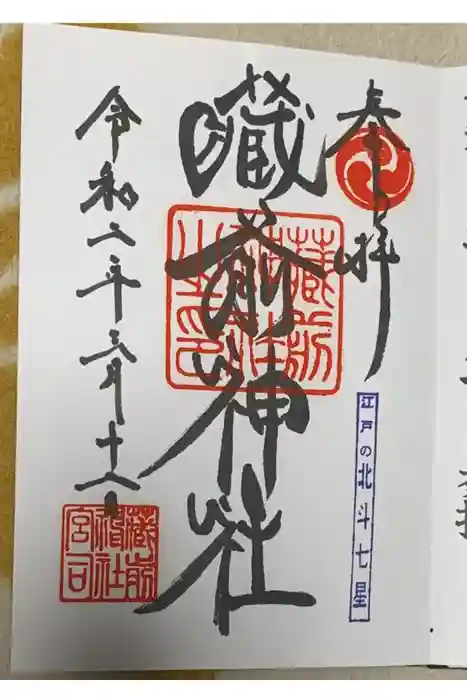 奉拝
江戸の北斗七星
藏前神社
藏前神社之印
令和二年三月十日
藏前神社宮司